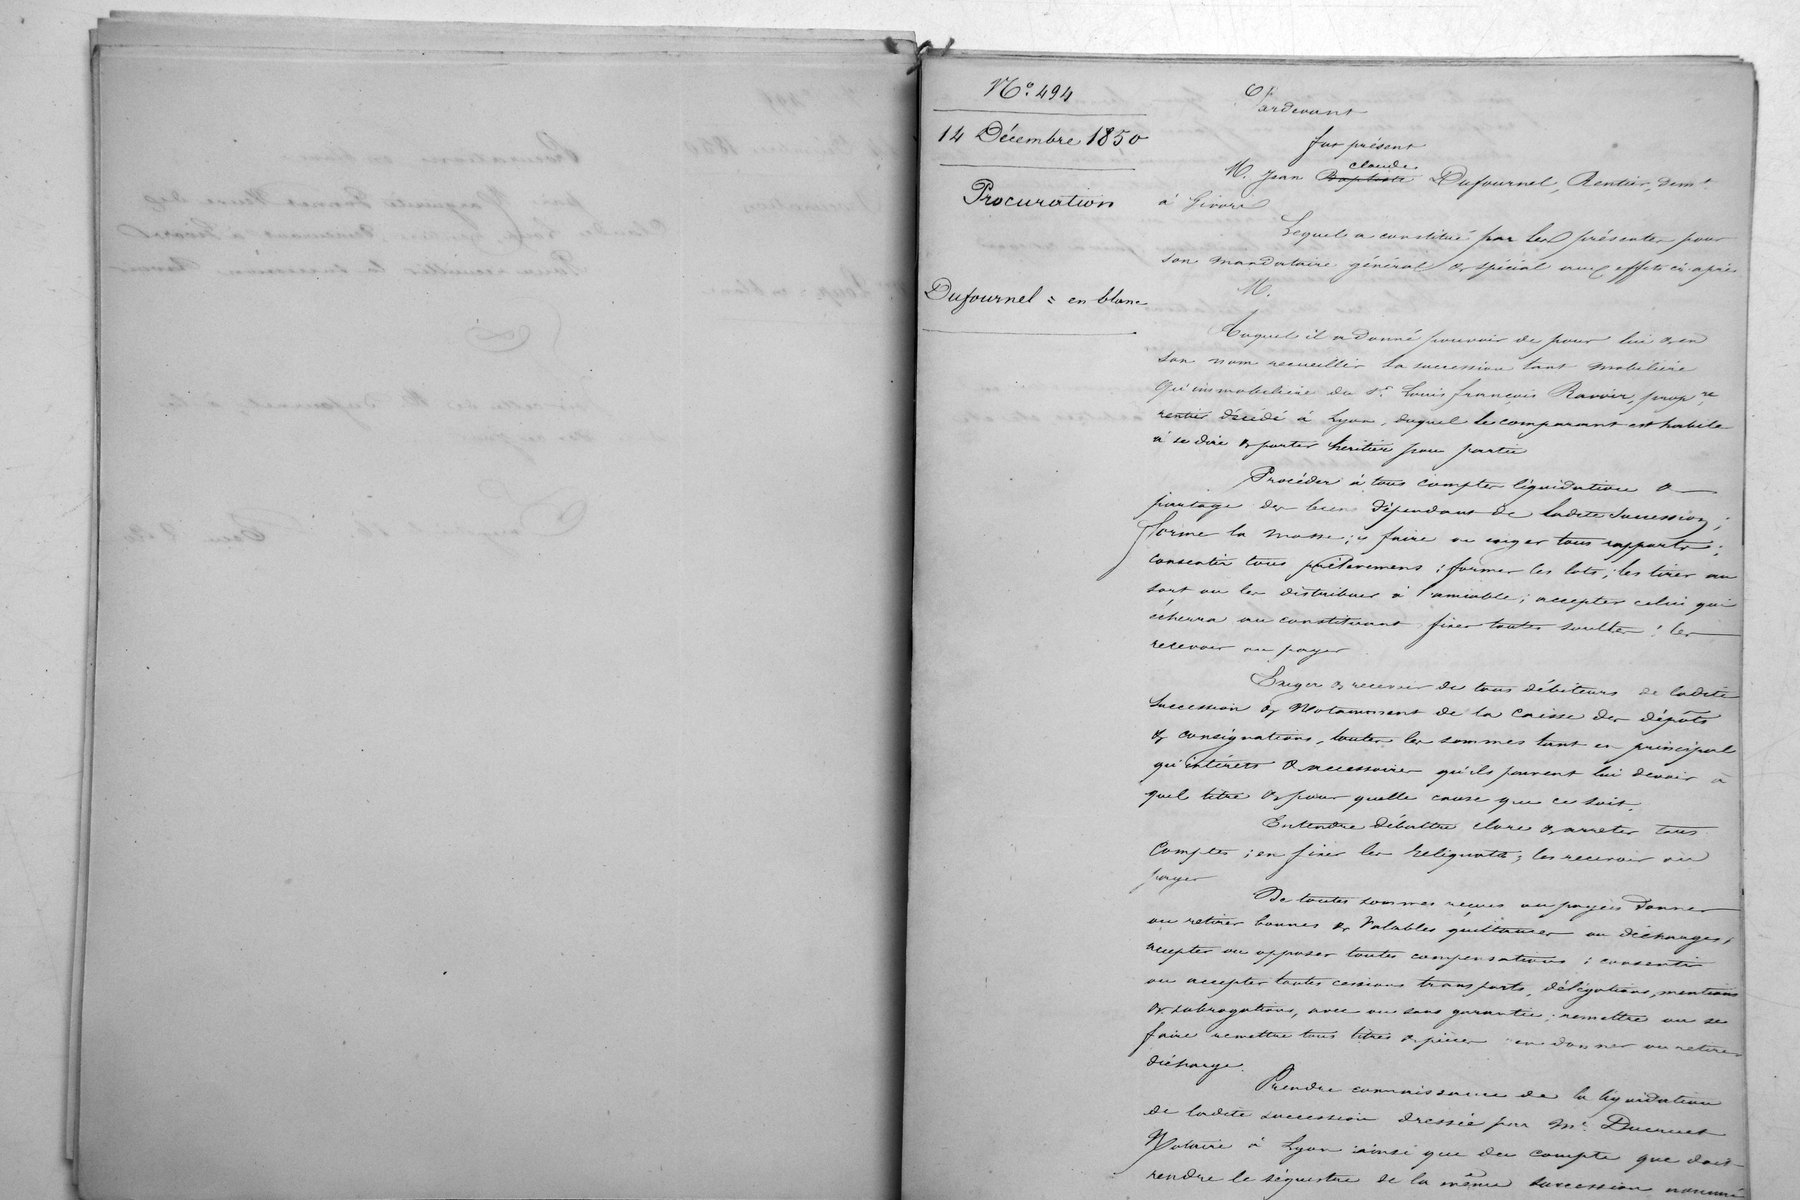 N.o 494
14 Décembre 1850
Procuration
Dufournel = en blanc
Pardevant
fut présent
claude
M. Jean Baptiste Dufournel, Rentier, demt
à Givors
Lequel a constitué par les présentes pour
son mandataire général & spécial aux effets ci après
M.
Auquel il a donné pouvoir de pour lui & en
son nom recueillir la succession tant mobilière
qu'immobilière du sr. Louis françois Ravoir, propre
rentier décédé à Lyon, duquel le comparant est habile
à se dire & porter héritier pour partie
Procéder à tous comptes liquidation &
partage des biens dépendant de ladite succession;
former la masse; y faire ou exiger tous rapports;
consentir tous prélèvemens; former les lots; les tirer au
sort ou les distribuer à l'amiable; accepter celui qui
écherra au constituant fixer toutes soultes; les
recevoir ou payer
Exiger & recevoir de tous débiteurs de ladite
succession & Notamment de la Caisse des dépôts
& consignations, toutes les sommes tant en principal
qu'intérêts & accessoires qu'ils peuvent lui devoir à
quel titre & pour quelle cause que ce soit.
Entendre débattre clore & arrêter tous
Comptes; en fixer les Reliquats; les recevoir ou
payer
De toutes sommes reçues ou payées donner
ou retirer bonnes & Valables quittances ou décharges;
accepter ou opposer toutes compensations; consentir
ou accepter toutes cessions transports, délégations, mentions
& subrogations, avec ou sans garantie; remettre ou se
faire remettre tous titres & pièces en donner ou retirer
décharge.
Prendre connaissance de la liquidation
de ladite succession dressée par Me. Ducruet
Notaire à Lyon ainsi que du compte que doit
rendre le séquestre de la même succession nommé